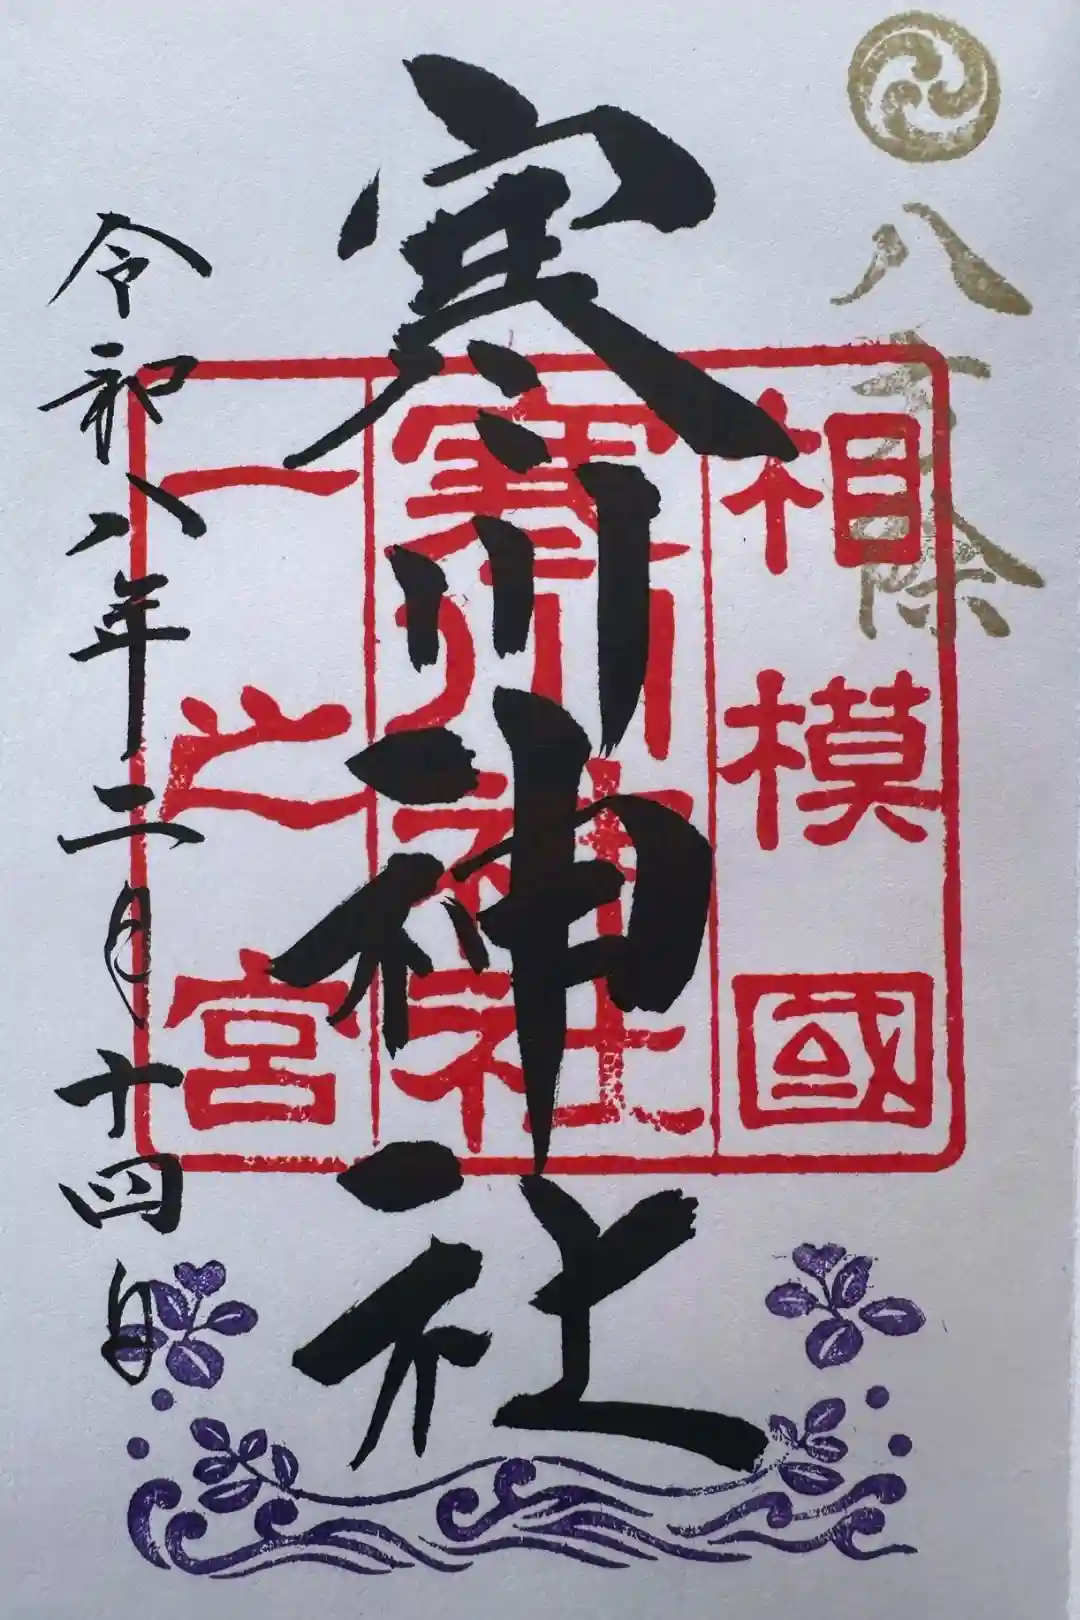 八方除
相模國
寒川神社
一之宮
寒川神社
令和八年二月十四日